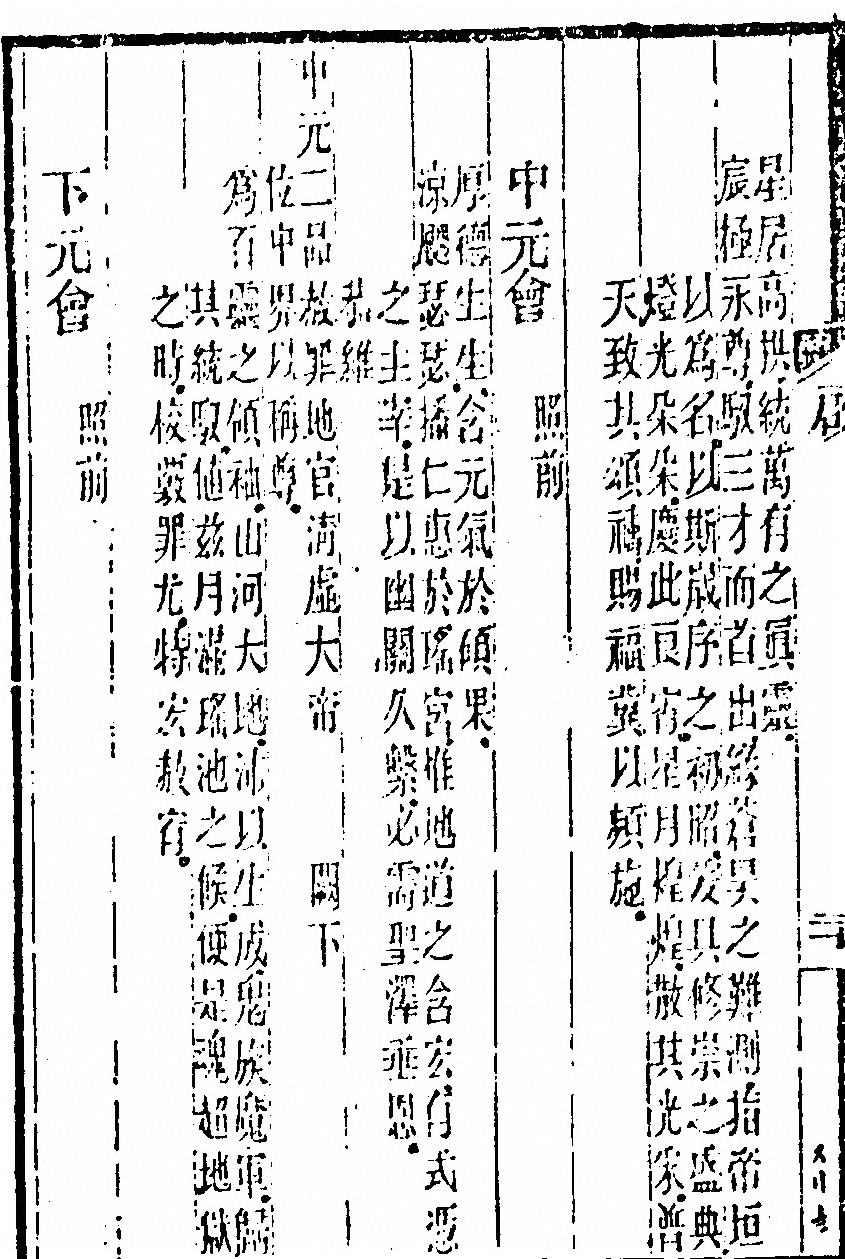 星居高拱統萬有之眞靈
宸極永尊馭三才而首出緣蒼昊之難測指帝垣
以爲名以斯歲序之初昭爰具修崇之盛典
燈光朵朵慶此良宵星月煌煌散其光彩普
天致其頌禱賜福冀以頻施
中元會　照前
厚德生生含元氣於碩果
涼颸瑟瑟播仁惠於瑤宮惟地道之含宏有式憑
之主宰是以幽關久繫必需聖澤垂恩
恭維
中元二品赦罪地官淸虛大帝　闕下
位中界以稱尊
爲百靈之傾袖山河大地沛以生成鬼族魔軍歸
其統馭値茲月滿瑤池之候便是魂超地獄
之時校數罪尤特宏赦宥
下元會　照前
二